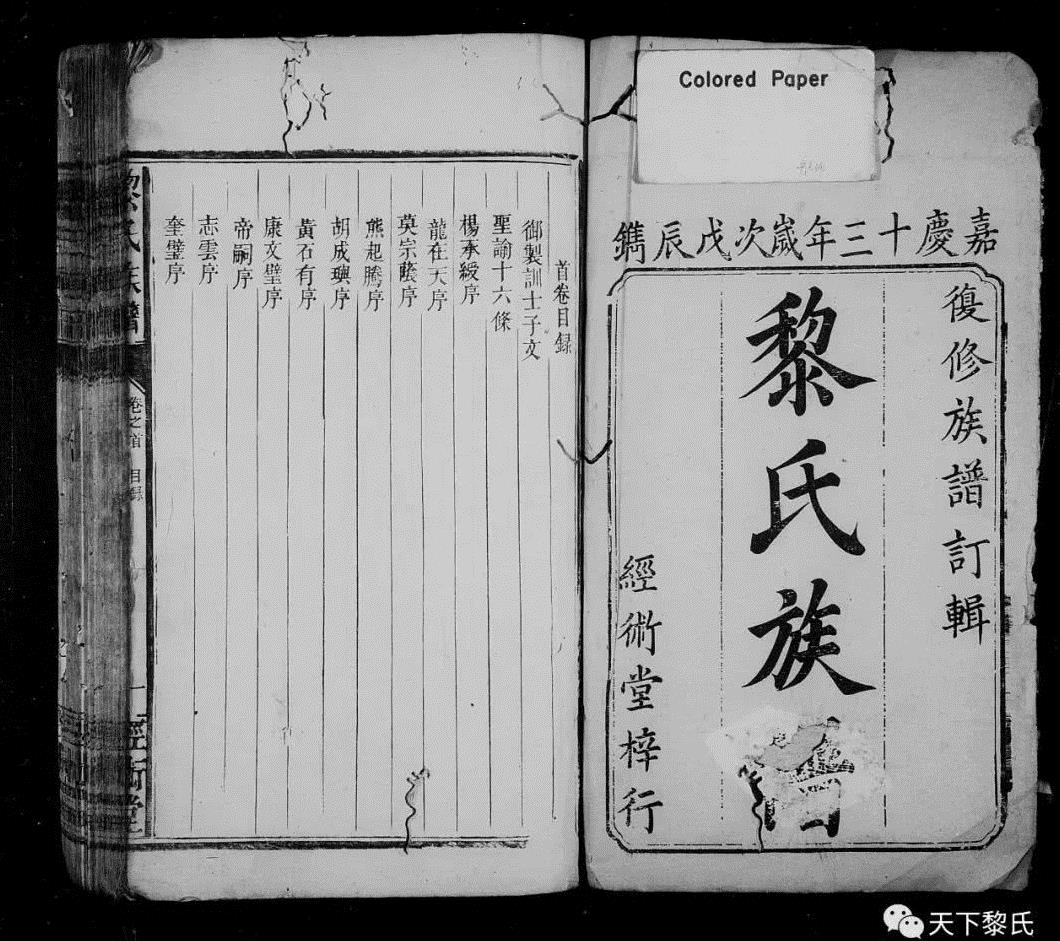 Colored Paper
嘉慶十三年歲次戊辰鐫
復修族譜訂輯
黎氏族
經術堂梓行
首卷目録
御製訓士子文
聖諭十六條
楊承緩序
龍在天序
莫宗蔭序
熊起騰序
胡成璵序
黃石有序
康文璧序
帝嗣序
志雲序
奎璧序
黎氏族譜
卷之首 目録
一 經術堂
天下黎氏